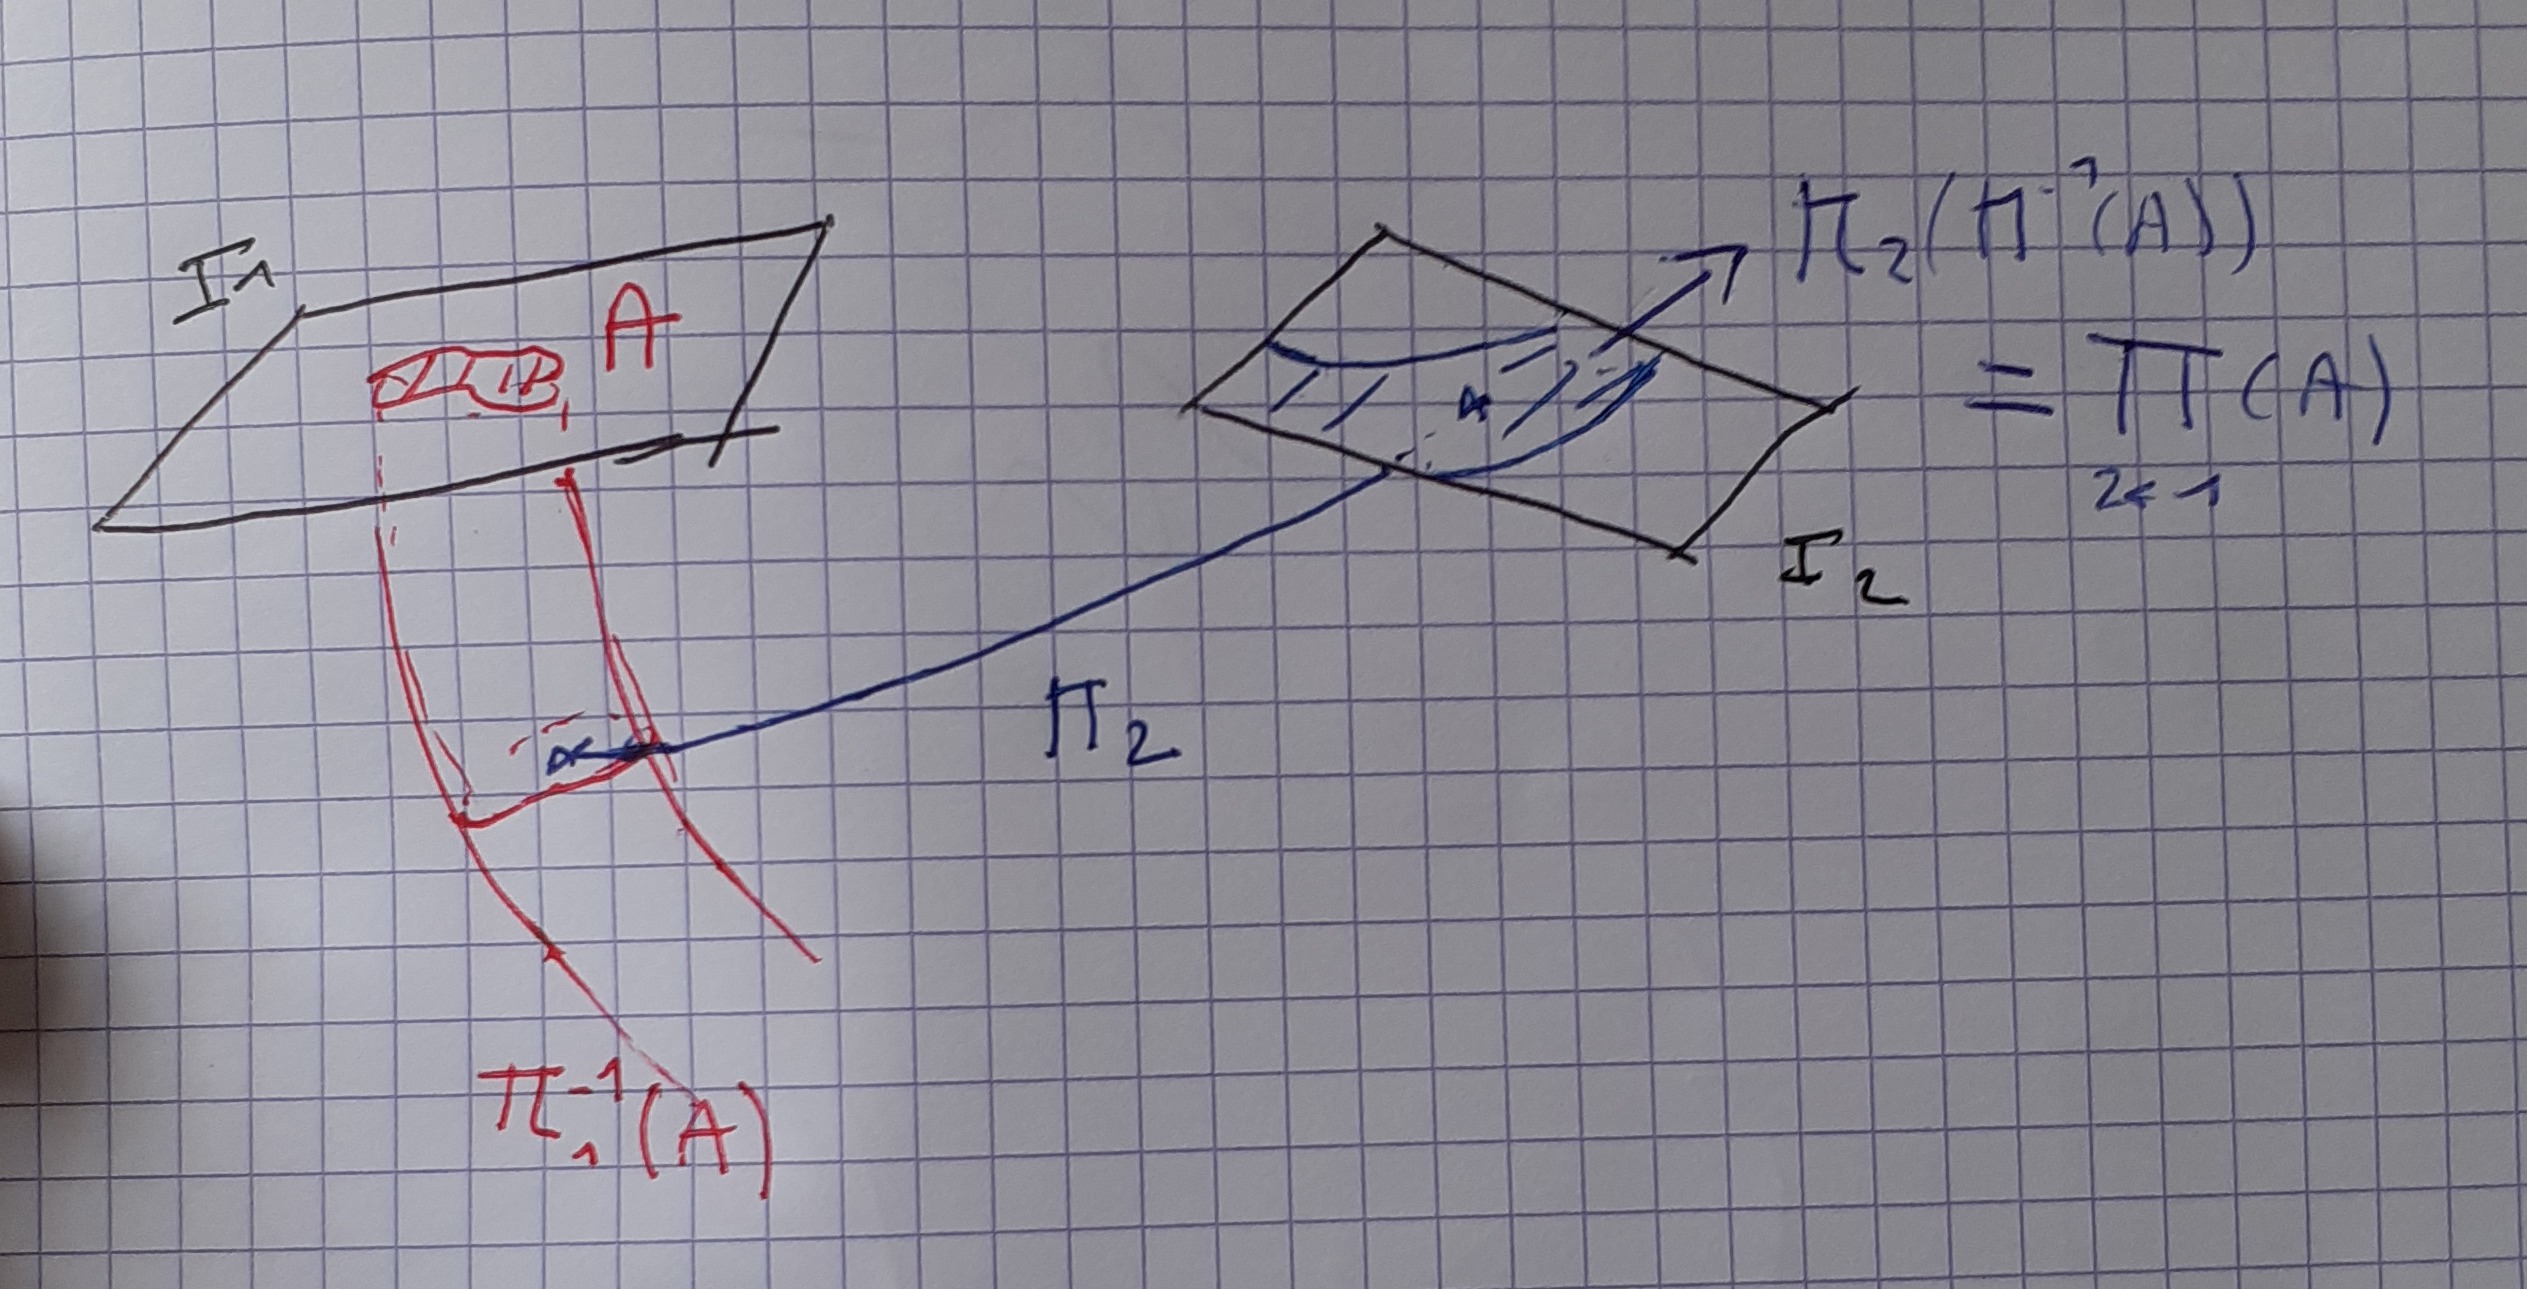 I₁
A
π₂(π⁻¹(A))
= π (A)
2←1
I₂
π₂
π₁⁻¹(A)